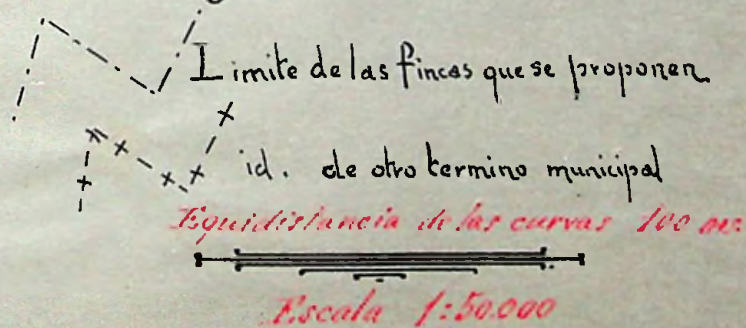 Limite de las fincas que se proponen
id. de otro termino municipal
Equidistancia de las curvas 100 ms.
Escala 1:50.000